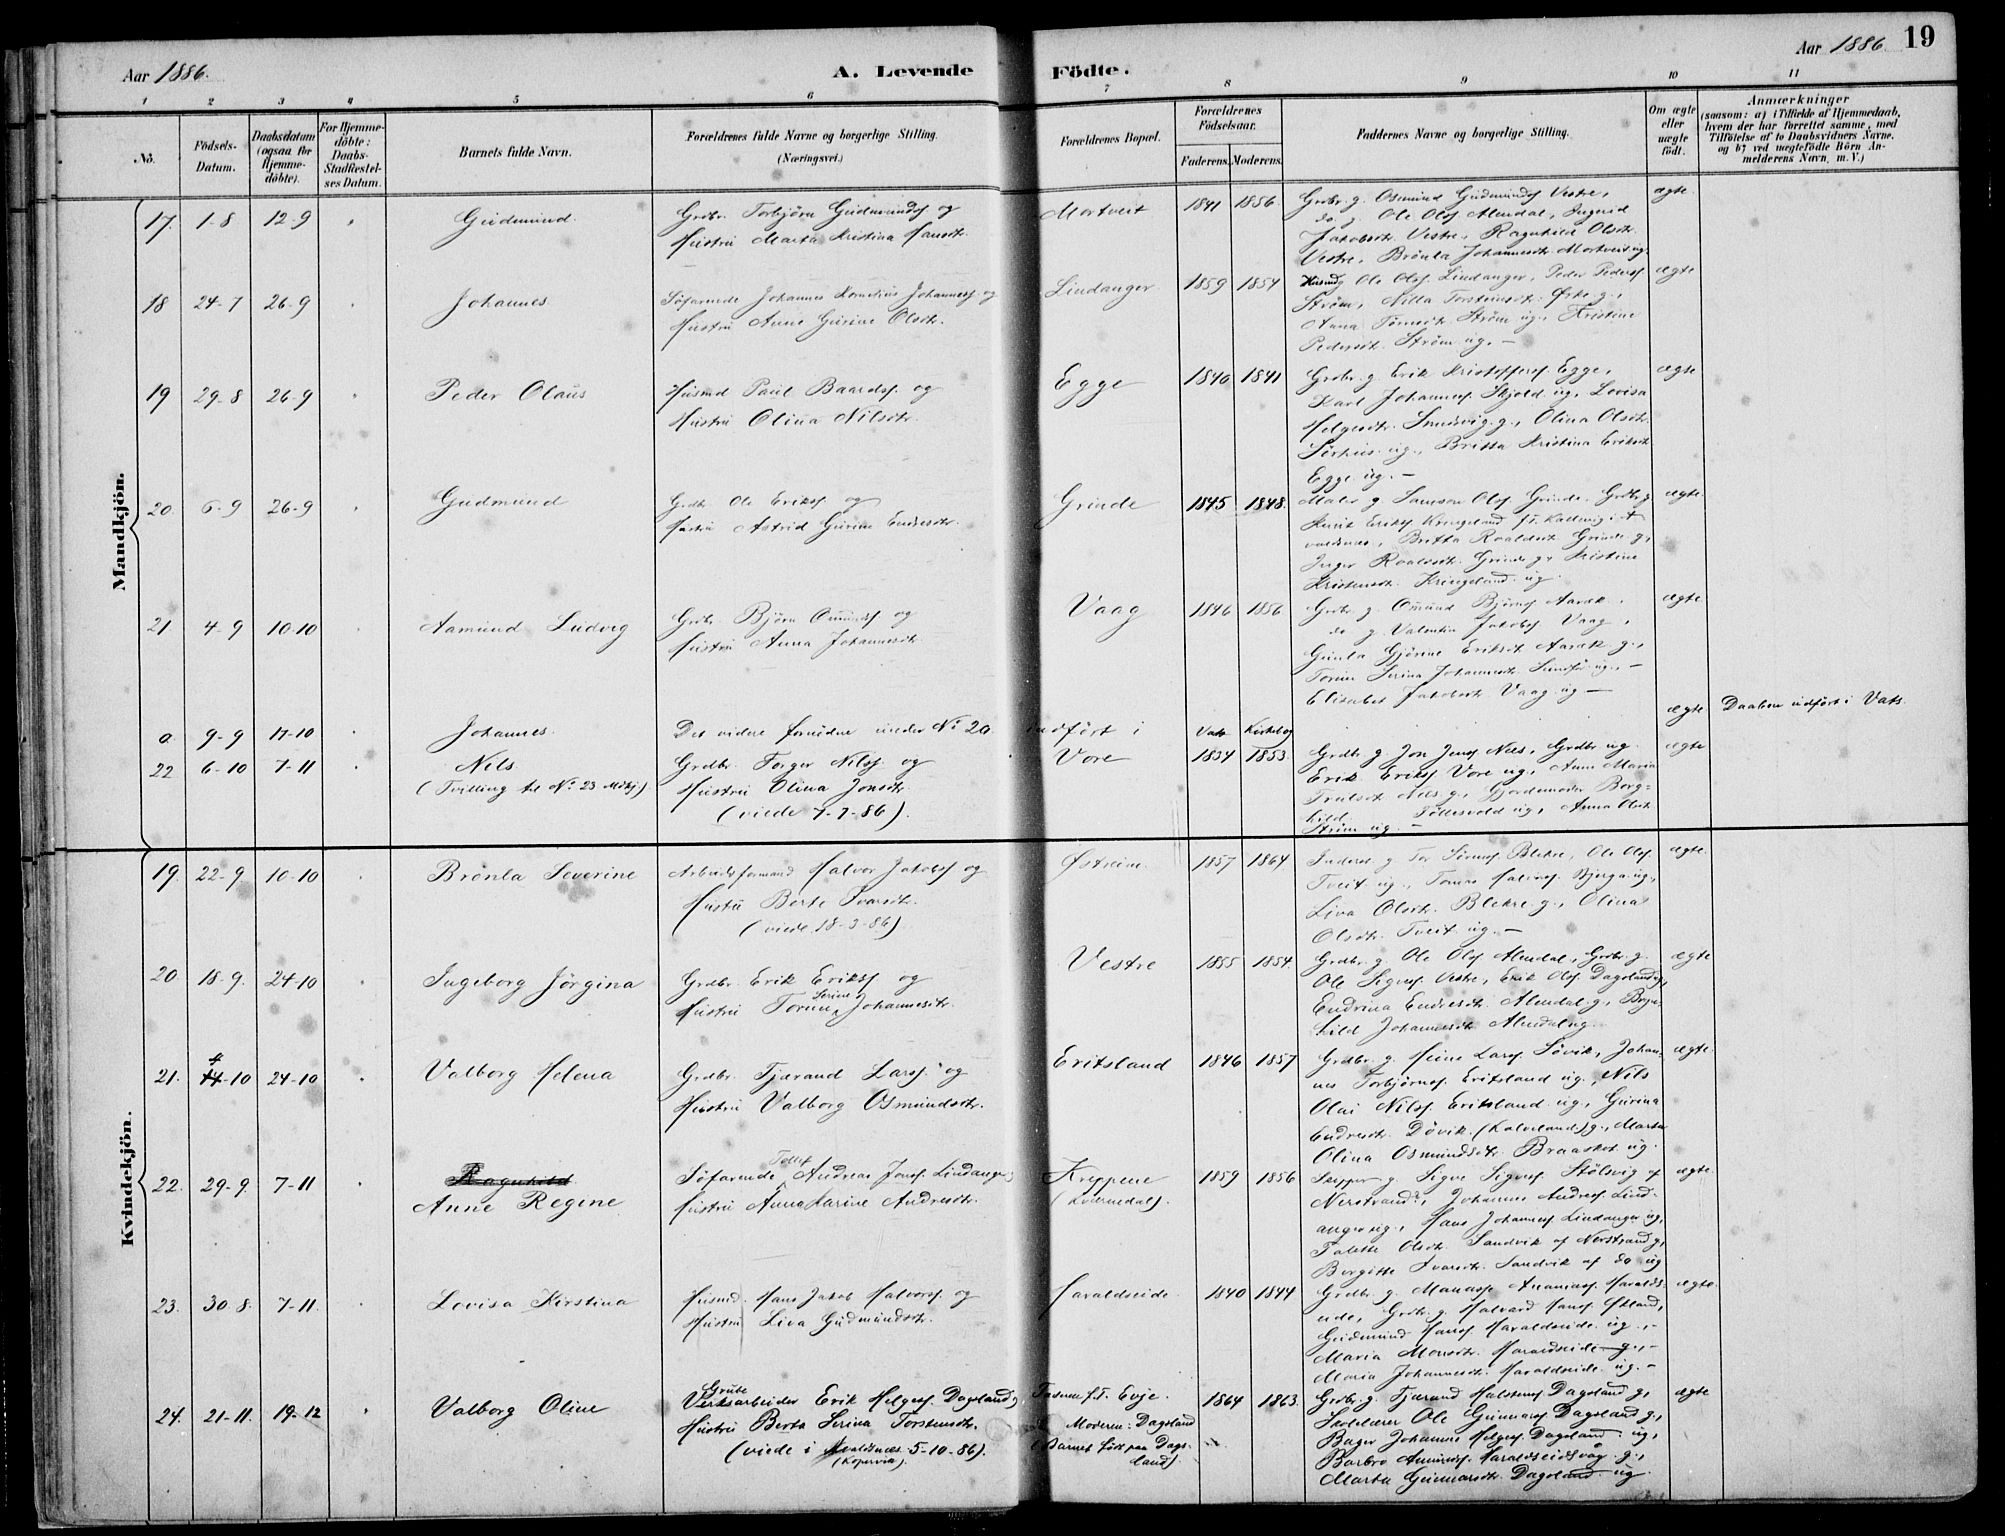 Aar 1886.
A. Levende Födte.
Aar 1886
19
1
2
3
4
5
6
7
8
9
10
11
No.
Födsels-Datum.
Daabsdatum (ogsaa for Hjemme-döbte).
For Hjemme-döbte: Daabs-Stadfæstel-ses Datum.
Barnets fulde Navn.
Forældrenes fulde Navne og borgerlige Stilling. (Næringsvei.)
Forældrenes Bopæl.
Forældrenes Födselsaar.
Faderens. Moderens.
Faddernes Navne og borgerlige Stilling.
Om ægte eller uægte födt.
Anmærkninger
(saasom: a) i Tilfælde af Hjemmedaab, hvem der har forrettet samme, med Tilföielse af to Daabsvidners Navne, og b) ved uægtefödte Börn An-melderens Navn, m. V.)
Mandkjön.
17. 1-8 12-9 Gudmund. Grdbr. Torbjörn Gudmunds. og
Hustru Marta Kristina Hansdtr.
Mortveit 1841 1856
Grdbr. g. Osmund Gudmunds. Vestre,
do g. Ole Ols. Alendal, Ingerid
Jakobsdtr. Vestre, Ragnhild Olsdtr.
Vestre, Brönla Johannesdtr. Mortveit ug.
ægte
18 24-7 26-9 Johannes Söfarende Johannes Kornelius Johannes. og
Hustru Anne Gurine Olsdtr.
Lindanger 1859 1854
Husmd Ole Ols. Lindanger, Peder Peders.
Ström, Nilla Torsteinsdtr. g.,
Anna Ström ug., Kristine
Pedersdtr. Ström ug. —
ægte
19 29-8 26-9 Peder Olaus Husmd Paul Baards. og
Hustru Olina Nilsdtr.
Egge 1840 1841
Grdbr. g. Erik Kristoffers. Egge,
Karl Johannes. Skjold ug., Lovisa
Helgesdtr. g., Olina Olsdtr.
ug., Britta Kristina Eriksdtr.
Egge ug. —
ægte
20. 6-9 26-9 Gudmund Grdbr. Ole Eriks. og
Hustru Astrid Gurine Endresdtr.
Grinde 1845 1848.
Maler g. Samson Ols. Grinde, Grdbr. g.
Eriks. Kringeland
Britta Roaldsdtr. Grinde g.,
Inger Roaldsdtr. Grinde g., Kristine
Kristensdtr. Kringeland ug.
ægte
21 4-9 10-10 Aamund Ludvig Grdbr. Björn Omunds. og
Hustru Anna Johannesdtr.
Vaag 1846 1856
Grdbr. g. Omund Björns. Aarak,
do g. Valentin Jakobs. Vaag,
Gunla Gjörine Eriksdtr. Aarak g.,
Torine Serina Johannesdtr. ug., —
Elisabet Jakobsdtr. Vaag ug —
ægte
a. 9-9 17-10 Johannes. Det videre fornödne under No 20 indfört i Vats Kirkebog
ægte Daaben udfört i Vats.
22 6-10 7-11 Nils
(Tvilling til No. 23 Mdkj.)
Grdbr. Torger Nils. og
Hustru Olina Jonsdtr.
(viede 7-7-86).
Vore 1834 1853.
Grdbr. g. Jon Jens. Nes, Grdbr. ug.
Erik Eriks. Vore ug., Anne Maria
Trulsdtr. Nes g., Gjordemoder Borg-
hild Tollesvold ug., Anna Olsdtr.
Ström ug. —
ægte
Kvindekjön.
19. 22-9 10-10 Brönla Severine Arbeidsformand Halvor Jakobs. og
Hustru Berte Ivarsdtr.
(viede 18-3-86)
Östreim 1857 1864
g. Tor Blikre, Ole Ols.
Tveit ug., Halvors. Bjerga ug.,
Liva Olsdtr. Blikre g., Olina
Olsdtr. Tveit ug. —
ægte
20 18-9. 24-10 Ingeborg Jörgina Grdbr. Erik Eriks. og
Hustru Torine Serine Johannesdtr.
Vestre 1855 1854.
Grdbr. g. Ole Ols. Alendal, Grdbr. g.
Ole Sigvas. Vestre, Erik Ols. Dagsland ug,
Endrina Endresdtr. Alendal g., Bryn-
hild Johannesdtr. Alendal ug.
ægte
21. 4-10 24-10 Valborg Helena Grdbr. Tjærand Lars. og
Hustru Valborg Osmundsdtr.
Eritsland 1846 1857
Grdbr. g. Heine Lars. Lövik, Johan-
nes Torbjörns. Eritsland ug., Nils
Olai Nils. Eritsland ug., Gurina
Endresdtr. Dövik (Halveland) g., Marta
Olina Osmundsdtr. Braaskot ug.
ægte
22. 29-9. 7-11 Ragnhild
Anne Regine
Söfarende Tollef Andreas Jons. Lindanger
Hustru Anna Karine Andresdtr.
Kreppene
(Kvernedal).
1859 1856
Skipper g. Sigve Sigves. Stölsvig af
Nerstrand, Johannes Andreas. Lind-
anger ug., Hans Johannes. Lindanger ug,
Talette Olsdtr. Sandvik af Nerstrand g,
Borgitte Ivarsdtr. Sandvik af do ug
ægte
23. 30-8. 7-11. Lovisa Kirstina Husmd. Hans Jakob Halvors. og
Hustru Liva Gudmundsdtr.
Haraldseide 1840 1844
Grdbr. g. Manasse Ananias. Haralds-
eide, Grdbr. g. Halvard Hans. Östland,
Gudmund Hans. Haraldseide ug., —
Maria Monsdtr. Haraldseide g., —
Maria Johannesdtr. Haraldseide ug. —
ægte
24. 21-11. 19-12 Valborg Oline Grube
Verksarbeider Erik Helges. Dagsland,
Hustru Berta Serina Torstensdtr.
(viede i Avaldsnes 5-10-86).
(Kopervik).
f. T. Evje.
Moderen: Dagsland
(Barnet födt paa Dags-
land)
1864 1863.
Grdbr. g. Tjærand Halstens. Dagsland g,
Skolelærer Ole Gunnars. Dagsland g.,
Bager Johannes Helges. Dagsland ug,
Barbro Haraldseidsvåg g.,
Marta Gunnarsdtr. Dagsland ug.
ægte